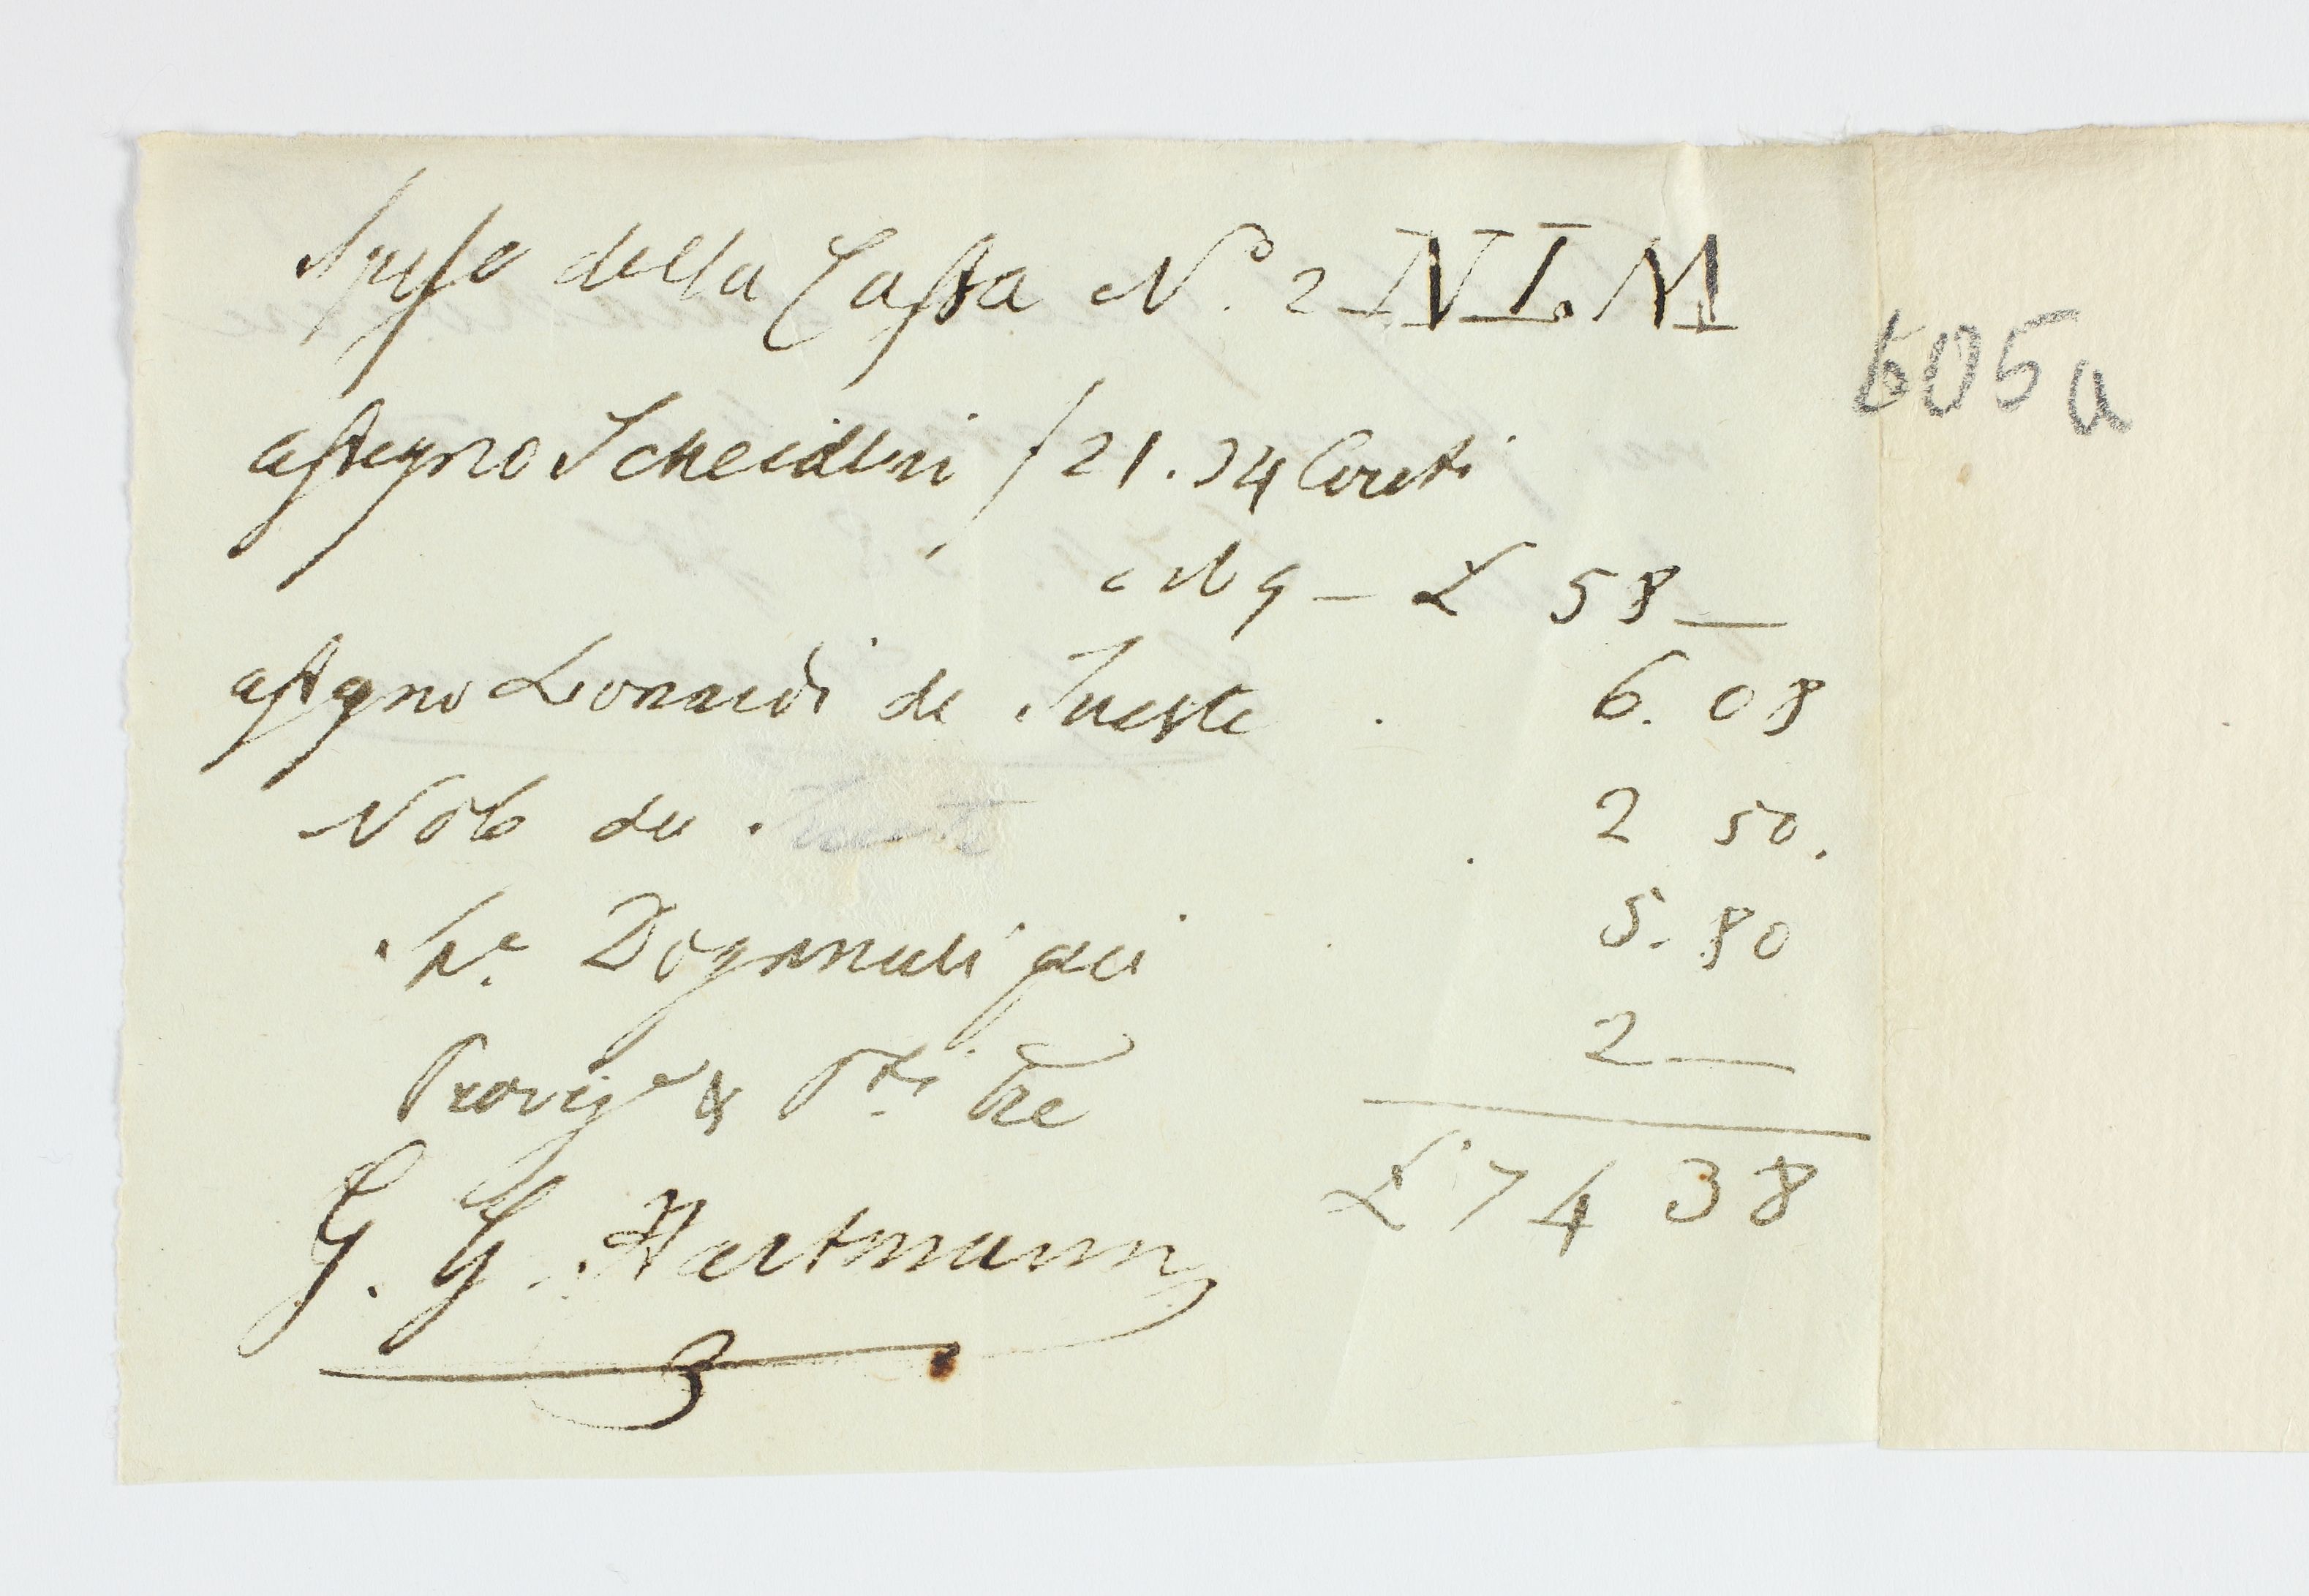 Spese della Cassa N.o 2 N I. M
605a
assegno Scheidlin f 21.34 Corrti
L 58 —
assegno Leonardi de Trieste . 6. 08
Nolo da . . 2 50.
Se. Doganali qui . 5. 80
Provige & Pti. 2 —
L 74 38
G. G. Hartmann